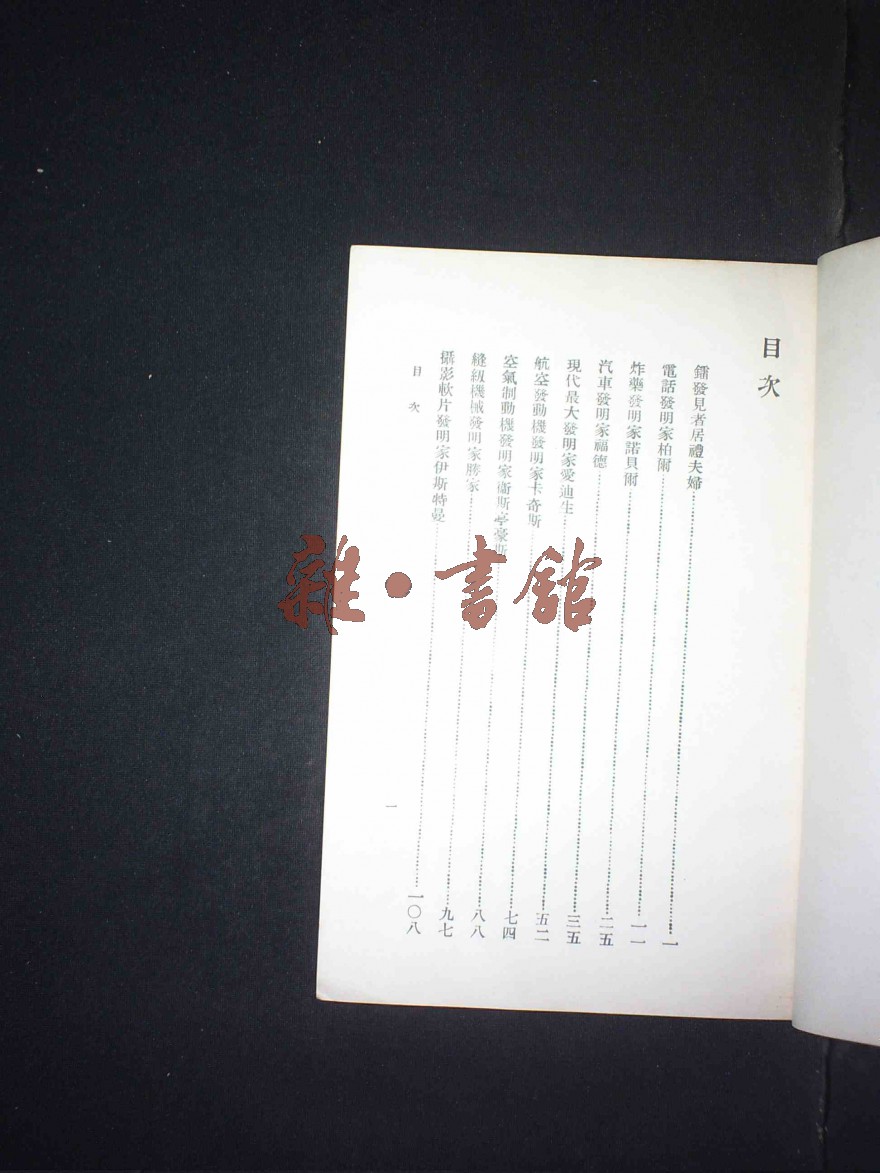 目次
鐳發見者居禮夫婦……一
電話發明家柏爾……一一
炸藥發明家諾貝爾……二五
汽車發明家福德……三五
現代最大發明家愛迪生……五二
航空發動機發明家卡奇斯……七四
空氣制動機發明家衞斯亭豪斯……八八
縫級機械發明家勝家……九七
攝影軟片發明家伊斯特曼……一〇八
目次
一
雜·書館